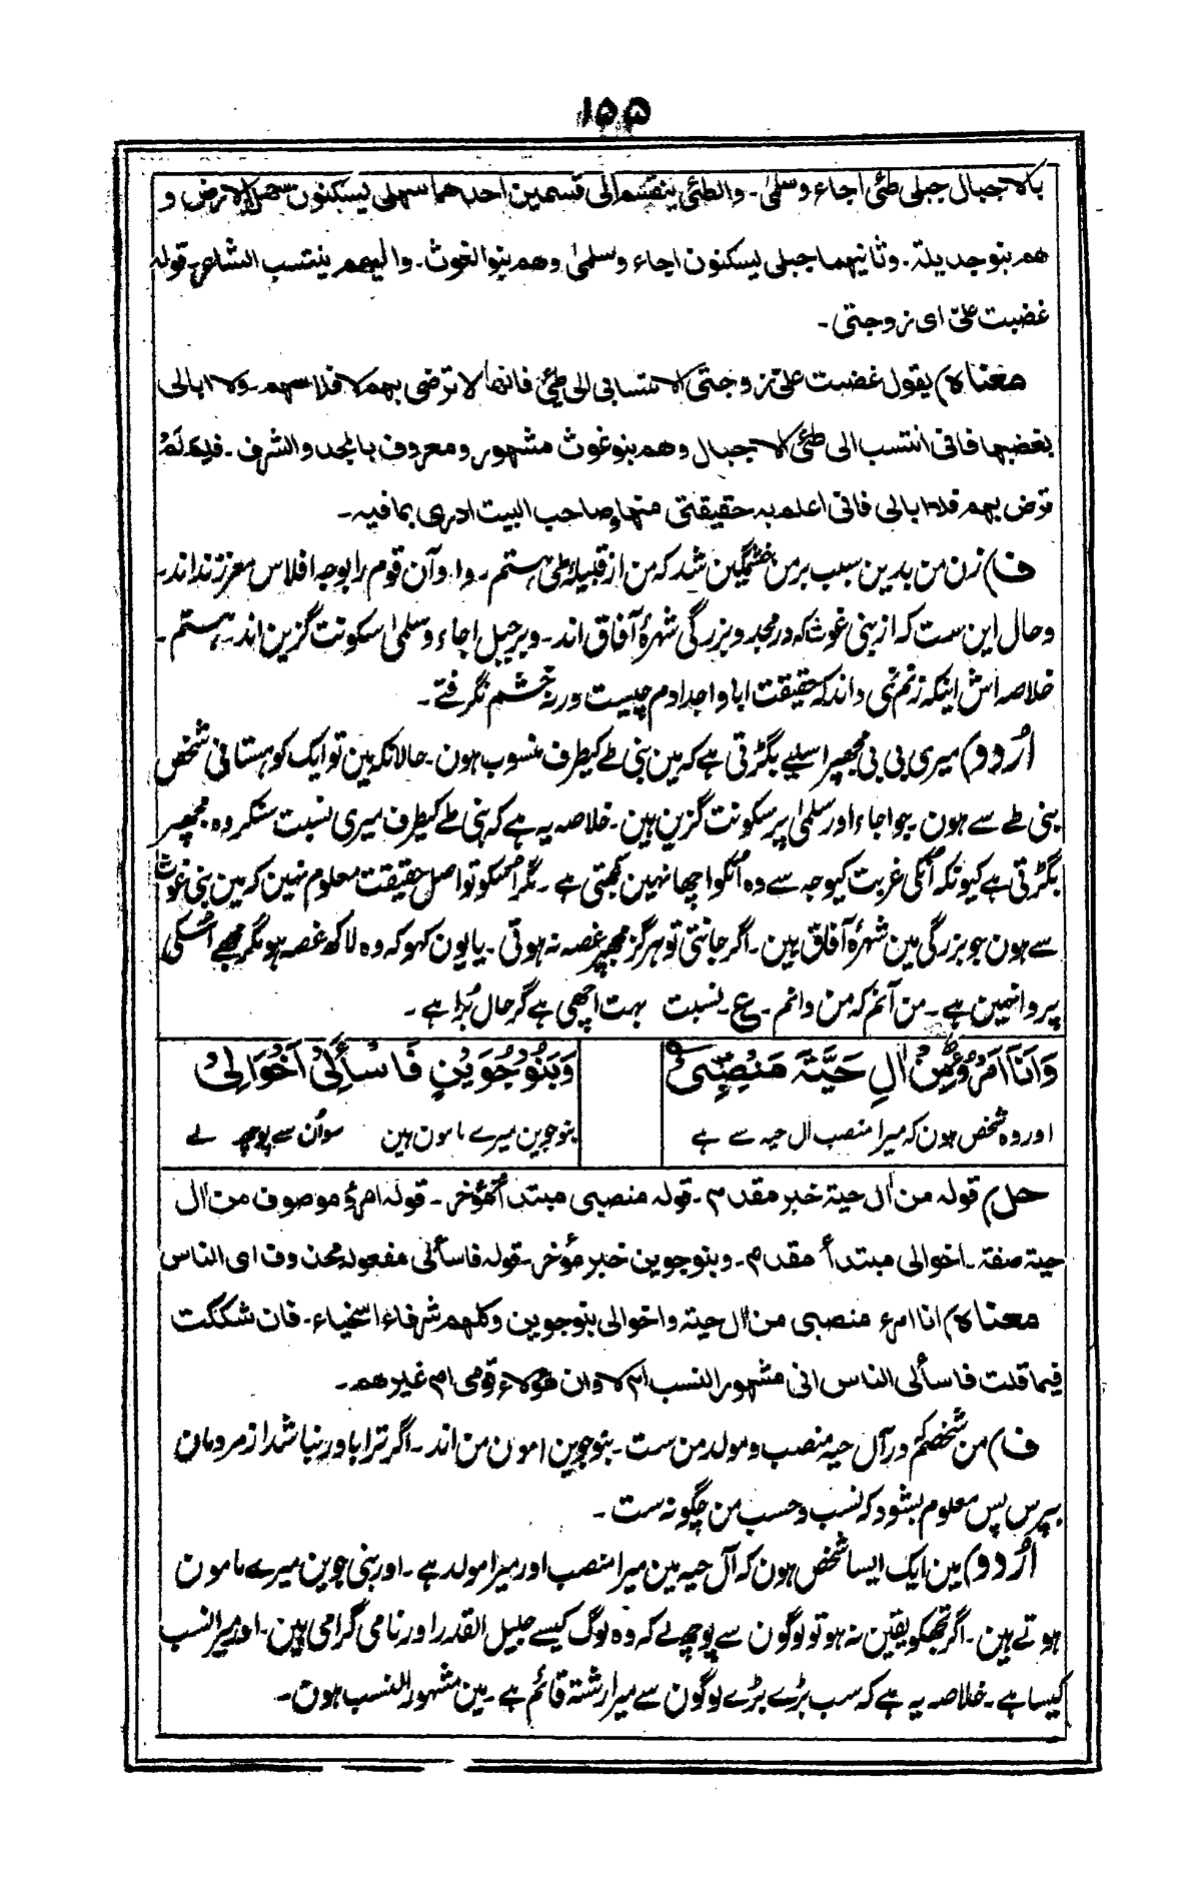 ۱۵۵
بالاجبال جبلی طئی اجاء وسلمیٰ۔ والطئی ینقسم الی قسمین احدهما سهلی یسکنون سهل الارض و
هم بنو جدیلة۔ وثانیهما جبلی یسکنون اجاء وسلمیٰ وهم بنوالغوث۔ والیهم ینتسب الشاعر۔ قوله
غضبت علیّ ای زوجتی۔
معناه) یقول غضبت علیّ زوجتی لانتسابی الی طیّ فانها لا ترضی بهم لافلاسهم۔ ولا ابالی
بغضبها فانی انتسب الی طئی الاجبال وهم بنو غوث مشهور ومعروف بالمجد والشرف۔ فلِمَ لَمْ
ترض بهم فلا ابالی فانی اعلم به حقیقتی منها وصاحب البیت ادری بما فیه۔
ف) زن من بدین سبب برمن خشمگین شد که من از قبیلهٔ طی هستم۔ واو آن قوم را بوجه افلاس معزز نداند۔
وحال این ست که از بنی غوث که در مجد و بزرگی شهرهٔ آفاق اند۔ وبر جبل اجاء وسلمیٰ سکونت گزین اند۔ هستم۔
خلاصه اش اینکه زنم نمی داند که حقیقت ابا واجدادم چیست ورنه خشم نگرفتے۔
اُردو) میری بی بی مجھپر اسلیے بگڑتی ہے کہ مین بنی طے کیطرف منسوب ہون۔ حالانکہ مین تو ایک کوہستانی شخص
بنی طے سے ہون۔ جو اجاء اور سلمیٰ پر سکونت گزین ہین۔ خلاصہ یہ ہے کہ بنی طے کیطرف میری نسبت سنکر وہ مجھپر
بگڑتی ہے کیونکہ اُنکی غربت کیوجہ سے وہ اُنکو اچھا نہین سمجھتی ہے۔ مگر اُسکو تو اصل حقیقت معلوم نہین کہ مین بنی غوث
سے ہون جو بزرگی مین شہرۂ آفاق ہین۔ اگر جانتی تو ہرگز مجھپر غصہ نہ ہوتی۔ یا یون کہو کہ وہ لاکھ غصہ ہو مگر مجھے اُسکی
پروا نہین ہے۔ من آنم کہ من دانم۔ ع۔ نسبت بہت اچھی ہے گر حال بُرا ہے۔
وَاَنَا امْرُؤٌ مِّنْ اٰلِ حَیَّةَ مَنْصِبِیْ
وَبَنُوْ جُوَیْنٍ فَاسْأَلِیْ اَخْوَالِیْ
اور وہ شخص ہون کہ میرا منصب ال حیہ سے ہے
بنو جوین میرے مامون ہین سو اُن سے پوچھ لے
حل) قوله من اٰل حیة خبر مقدم۔ قوله منصبی مبتدأ مؤخر۔ قوله امرؤ موصوف من اٰل
حیة صفة۔ اخوالی مبتدأ مقدم۔ وبنو جوین خبر مؤخر۔ قوله فاسألی مفعوله محذوف ای الناس
معناه) انا امرء منصبی من اٰل حیة واخوالی بنو جوین وکلهم شرفاء اسخیاء۔ فان شککت
فیما قلت فاسألی الناس انی مشهور النسب ام لا وان هؤلاء قومی ام غیرهم۔
ف) من شخصم که در آل حیه منصب ومولد من ست۔ بنو جوین مامون من اند۔ اگر ترا باور نباشد از مردمان
بپرس پس معلوم بشود که نسب وحسب من چگونه ست۔
اُردو) مین ایک ایسا شخص ہون کہ آل حیہ مین میرا منصب اور میرا مولد ہے۔ اور بنی جوین میرے مامون
ہوتے ہین۔ اگر تجھکو یقین نہ ہو تو لوگون سے پوچھ لے کہ وہ لوگ کیسے جلیل القدر اور نامی گرامی ہین۔ اور میرا نسب
کیسا ہے۔ خلاصہ یہ ہے کہ سب بڑے بڑے لوگون سے میرا رشتہ قائم ہے۔ مین مشہور النسب ہون۔